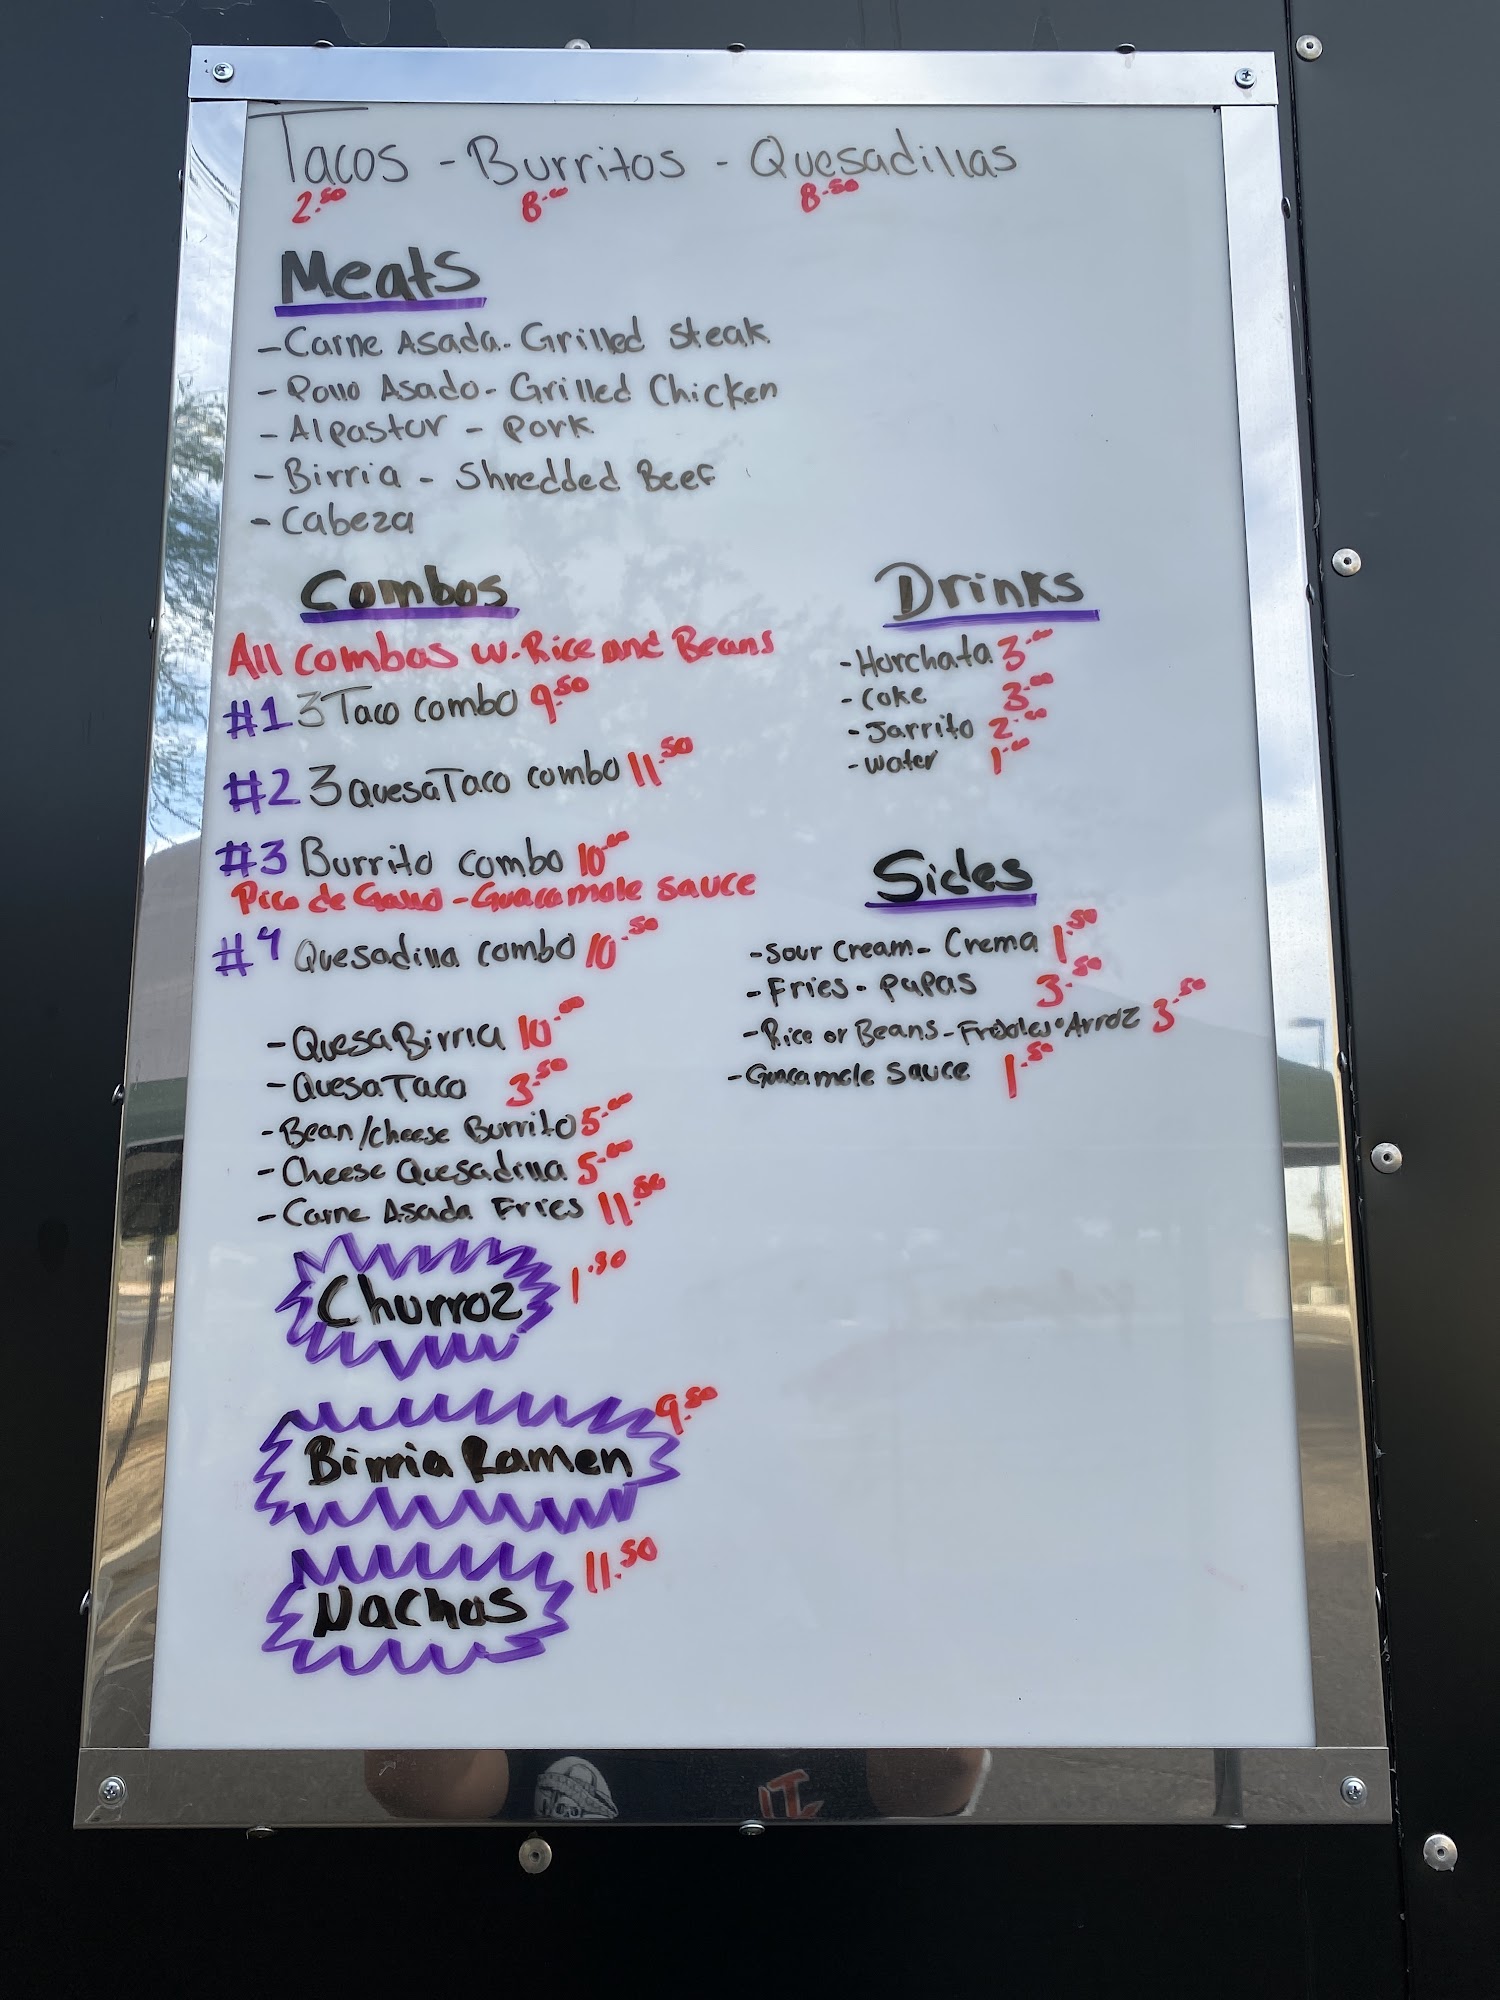 Tacos - Burritos - Quesadillas
2.50 8.00 8.50
Meats
- Carne Asada - Grilled Steak
- Pollo Asado - Grilled Chicken
- Al pastor - Pork
- Birria - Shredded Beef
- Cabeza
Combos
All combos w. Rice and Beans
#1 3 Taco combo 9.50
#2 3 QuesaTaco combo 11.50
#3 Burrito combo 10.00
Pico de Gallo - Guacamole sauce
#4 Quesadilla combo 10.50
- QuesaBirria 10.00
- QuesaTaco 3.50
- Bean/cheese Burrito 5.00
- Cheese Quesadilla 5.00
- Carne Asada Fries 11.50
Churroz 1.50
Birria Ramen 9.50
Nachos 11.50
Drinks
- Horchata 3.00
- Coke 3.00
- Jarrito 2.00
- water 1.00
Sides
- Sour Cream - Crema 1.50
- Fries - Papas 3.50
- Rice or Beans - Frijoles o Arroz 3.50
- Guacamole Sauce 1.50